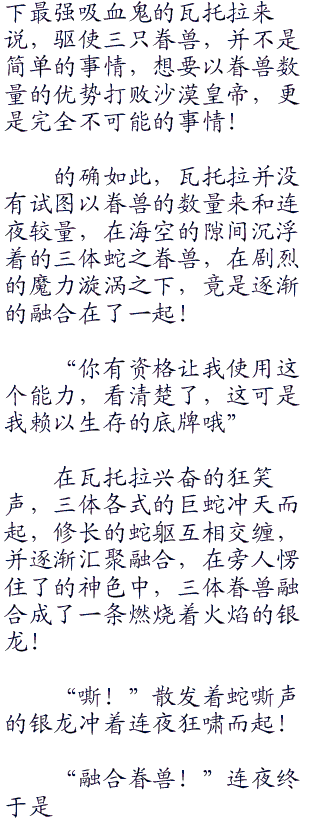 下最强吸血鬼的瓦托拉来
说，驱使三只眷兽，并不是
简单的事情，想要以眷兽数
量的优势打败沙漠皇帝，更
是完全不可能的事情！
的确如此，瓦托拉并没
有试图以眷兽的数量来和连
夜较量，在海空的隙间沉浮
着的三体蛇之眷兽，在剧烈
的魔力漩涡之下，竟是逐渐
的融合在了一起！
“你有资格让我使用这
个能力，看清楚了，这可是
我赖以生存的底牌哦”
在瓦托拉兴奋的狂笑
声，三体各式的巨蛇冲天而
起，修长的蛇躯互相交缠，
并逐渐汇聚融合，在旁人愣
住了的神色中，三体眷兽融
合成了一条燃烧着火焰的银
龙！
“嘶！”散发着蛇嘶声
的银龙冲着连夜狂啸而起！
“融合眷兽！”连夜终
于是